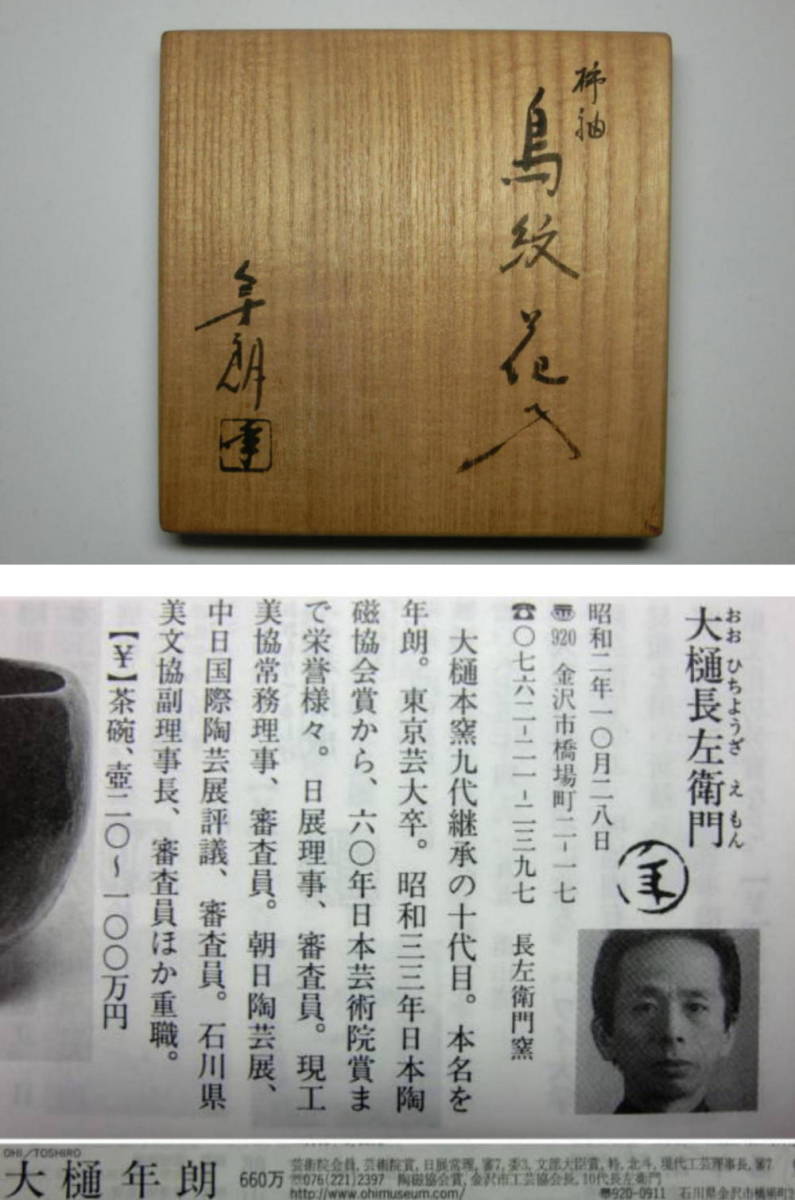 柿釉
鳥紋花入
年朗
年
大樋長左衛門
おおひちようざえもん
昭和二年一〇月二八日
〠920 金沢市橋場町二-一七
☎〇七六二-二一-二三九七 長左衛門窯
大樋本窯九代継承の十代目。本名を
年朗。東京芸大卒。昭和三三年日本陶
磁協会賞から、六〇年日本芸術院賞ま
で栄誉様々。日展理事、審査員。現工
美協常務理事、審査員。朝日陶芸展、
中日国際陶芸展評議、審査員。石川県
美文協副理事長、審査員ほか重職。
【¥】茶碗、壺二〇〜一〇〇万円
年
OHI/TOSHIRO
大樋年朗 660万
芸術院会員, 芸術院賞, 日展常理, 審7, 委3, 文部大臣賞, 特, 北斗, 現代工芸理事長, 審7
☎076(221)2397 陶磁協会賞, 金沢市工芸協会長, 10代長左衛門
http://www.ohimuseum.com/ 〠920-0911 石川県金沢市橋場町